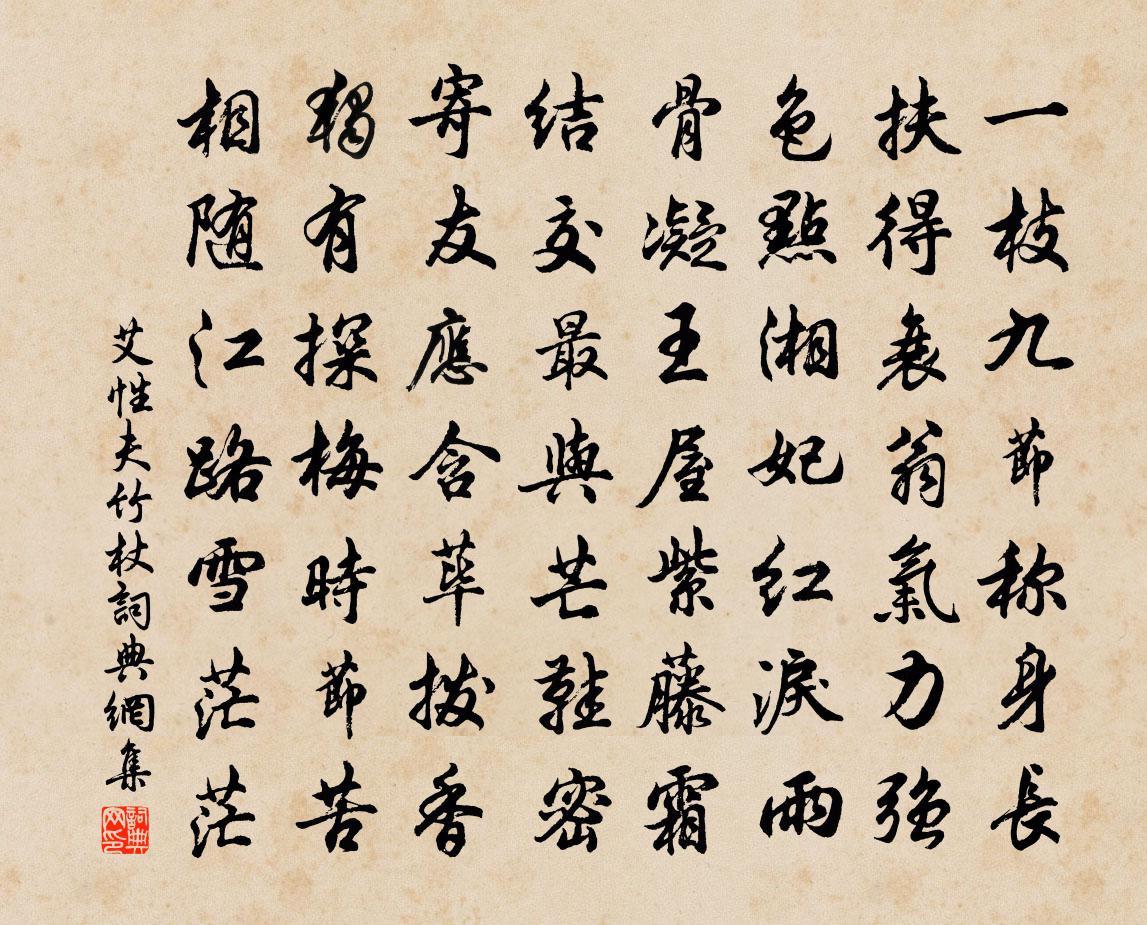 一枝九節称身長
扶得衰翁氣力強
色點湘妃紅淚雨
骨凝王屋紫藤霜
結交最與芒鞋密
寄友應含荜拨香
獨有探梅時節苦
相随江路雪茫茫
艾性夫竹杖詞典網集
詞典网印